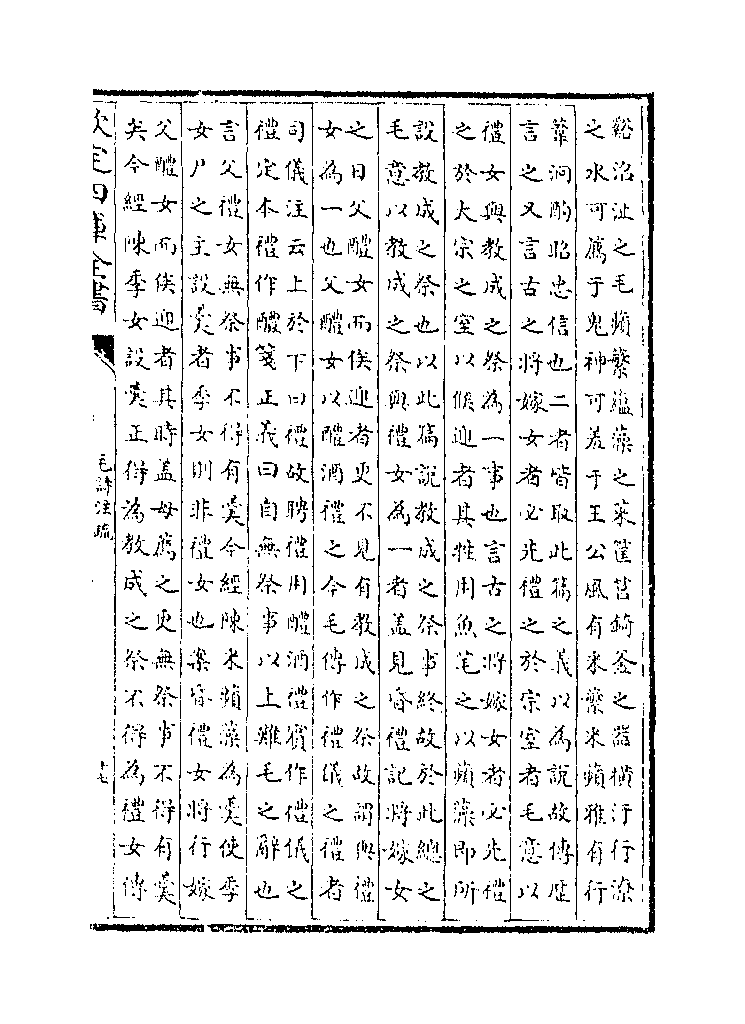 谿沼沚之毛蘋蘩蕰藻之菜筐筥錡釜之器橫汙行潦
之水可薦于鬼神可羞于王公風有采蘩采蘋雅有行
葦泂酌昭忠信也二者皆取此篇之義以為說故傳歷
言之又言古之將嫁女者必先禮之於宗室者毛意以
禮女與教成之祭為一事也言古之將嫁女者必先禮
之於大宗之室以候迎者其牲用魚芼之以蘋藻即所
說教成之祭也以此篇說教成之祭事終故於此總之
毛意以教成之祭與禮女為一者蓋見昏禮記將嫁女
之日父醴女而俟迎者更不見有教成之祭故謂與禮
女為一也父醴女以醴酒禮之今毛傳作禮儀之禮者
司儀注云上於下曰禮故聘禮用醴酒禮賓作禮儀之
禮定本禮作醴箋正義曰自無祭事以上難毛之辭也
言父禮女無祭事不得有羹今經陳采蘋藻為羹使季
女尸之主設羹者季女則非禮女也案昏禮女將行嫁
父醴女而俟迎者其時蓋母薦之更無祭事不得有羹
矣今經陳季女設羹正得為教成之祭不得為禮女傳
欽定四庫全書
毛詩注疏